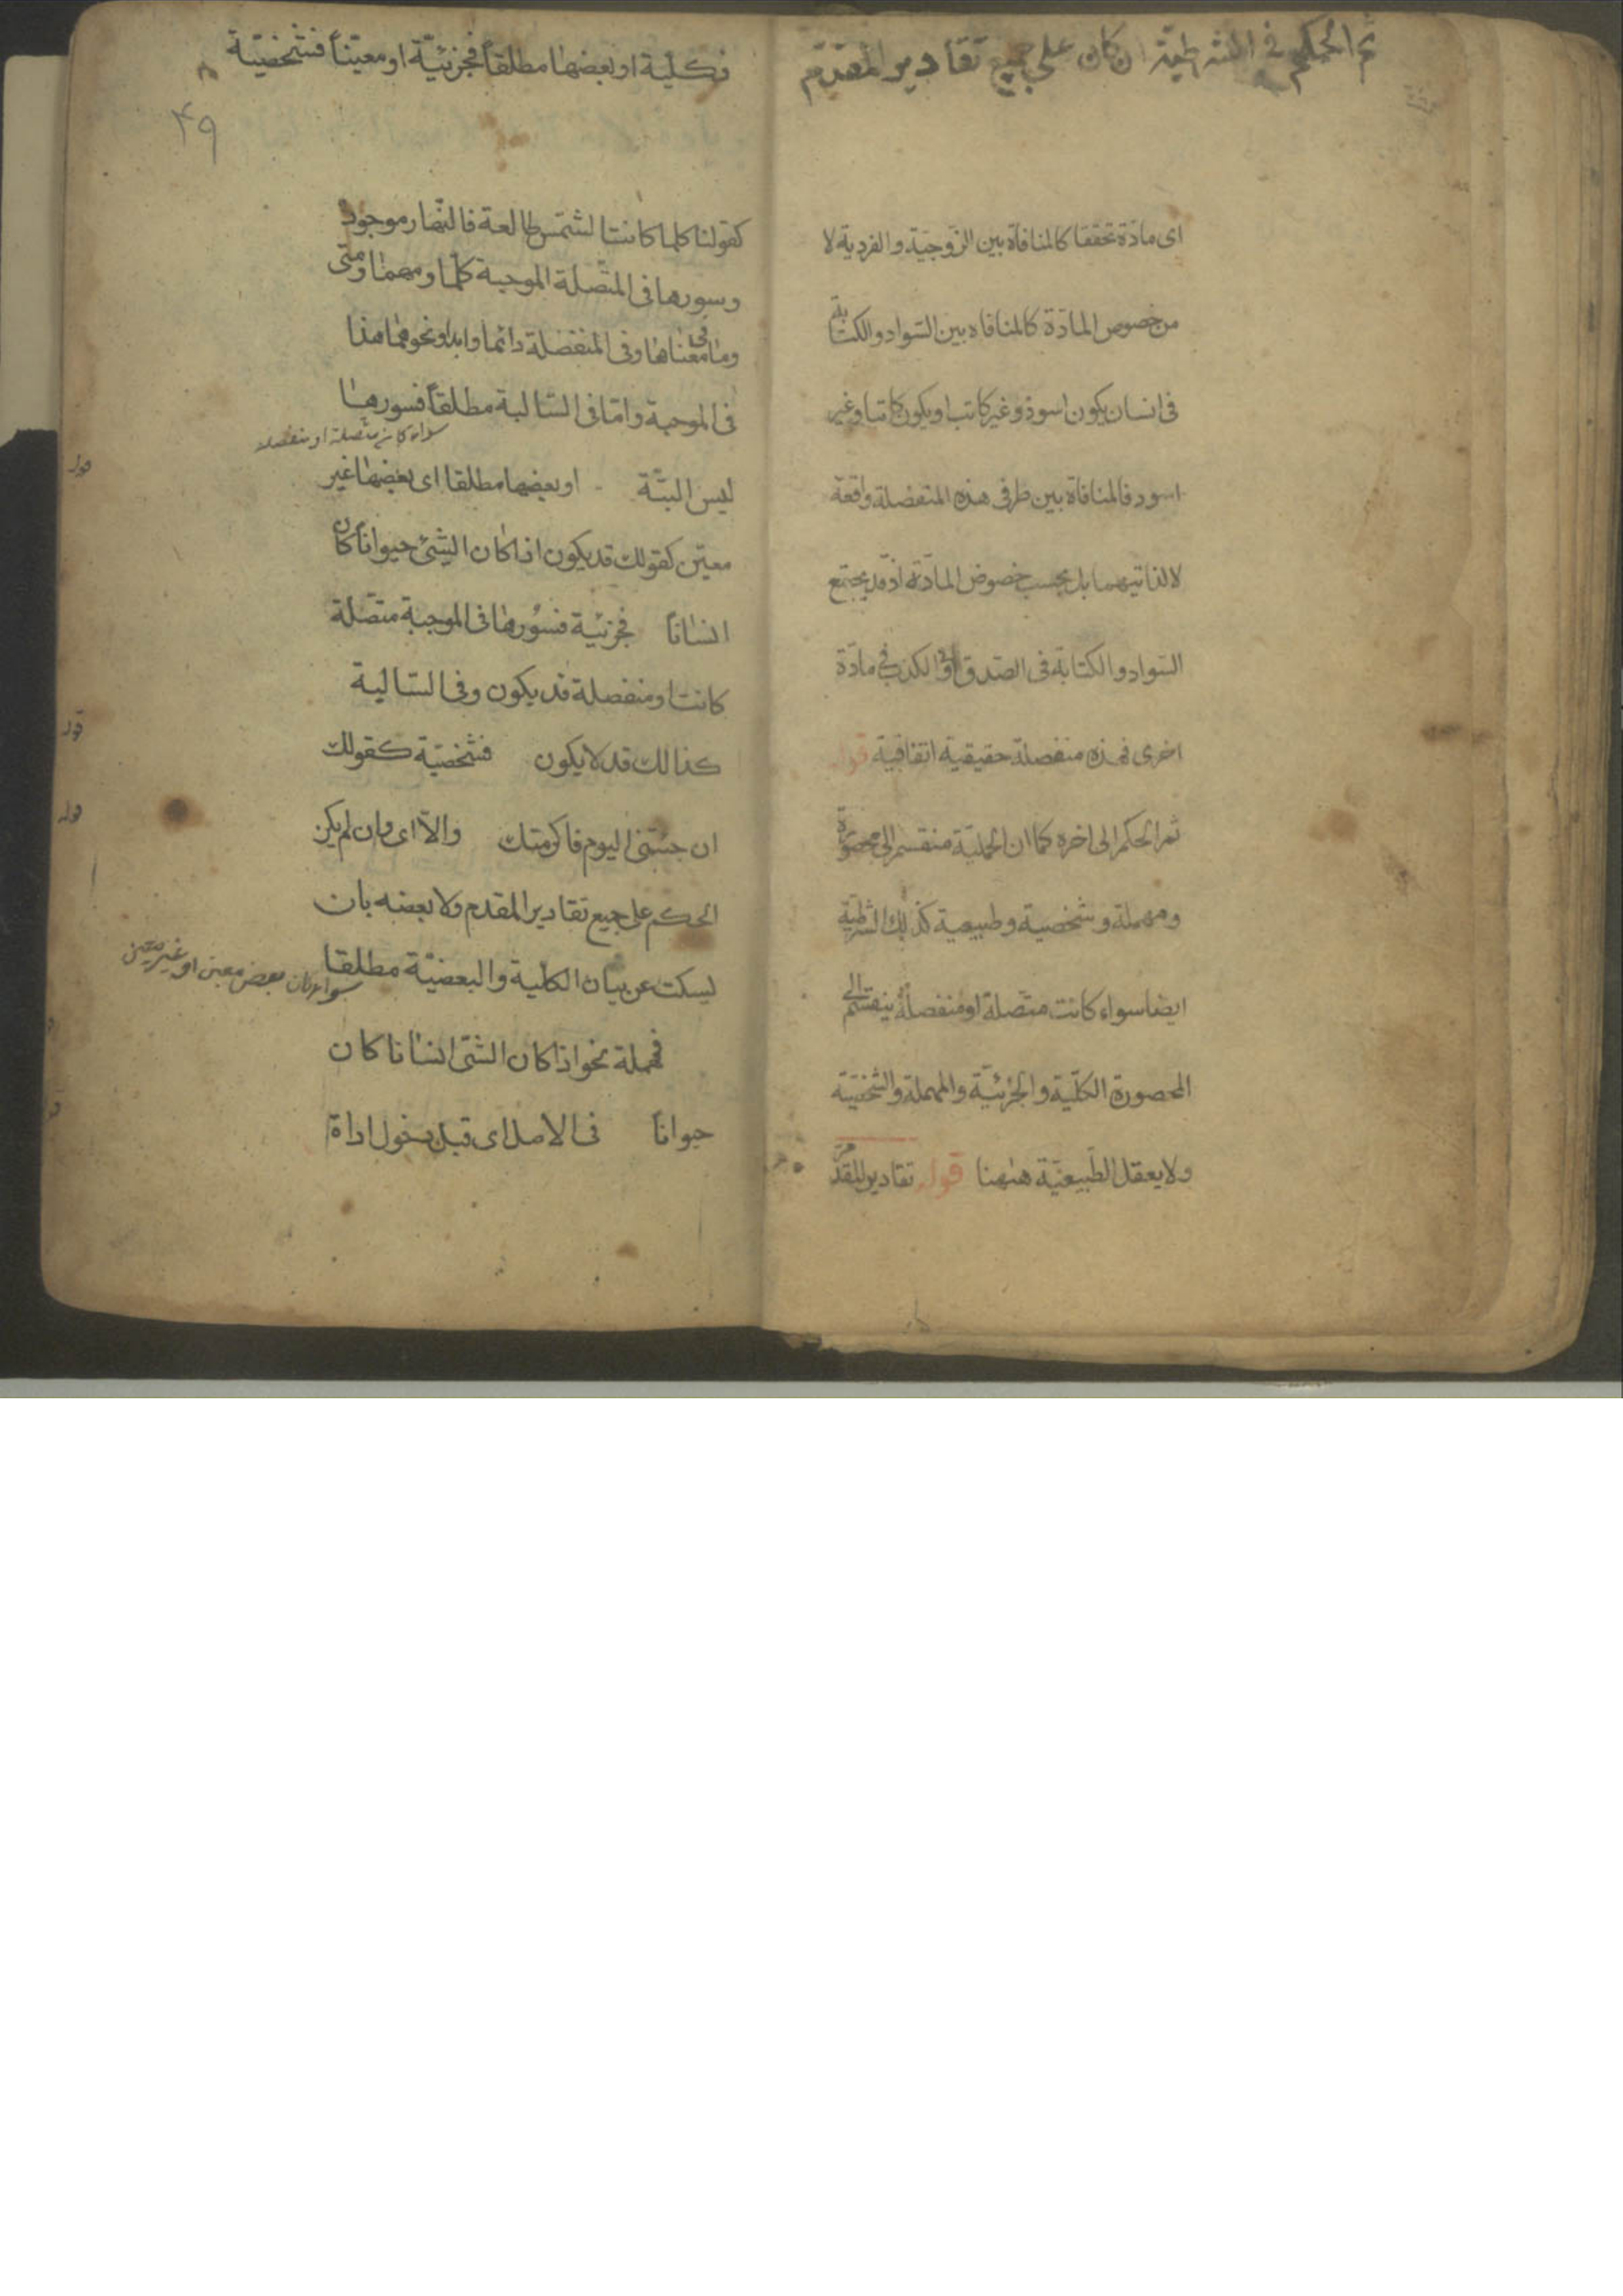 ثم الحكم في الشرطية ان كان على جميع تقادير المقدم
اى مادة تحققا كالمنافاة بين الزوجية والفردية لا
من خصوص المادة كالمنافاه بين السواد والكتابة
فى انسان يكون اسود وغير كاتب او يكون كاتبا وغير
اسود فالمنافاة بين طرفى هذه المنفصلة واقعة
لا لذاتيهما بل بحسب خصوص المادة اذ قد يجتمع
السواد والكتابة فى الصدق او الكذب فى مادة
اخرى فهذه منفصلة حقيقية اتفاقية قوله
ثم الحكم الى اخره كما ان الحملية منقسم الى محصورة
ومهملة وشخصية وطبيعية كذلك الشرطية
ايضا سواء كانت متصلة او منفصلة ينقسم الى
المحصورة الكلية والجزئية والمهملة والشخصية
ولا يعقل الطبيعية هنهنا قوله تقادير المقدم
فكلية او بعضها مطلقاً فجزئيّة او معيّناً فشخصيّة
۴۹
كقولنا كلما كانت الشمس طالعة فالنهار موجود
وسورها فى المتصلة الموجبة كلما ومهما ومتى
وما فى معناها وفى المنفصلة دائما وابدا ونحوهما هذا
فى الموجبة واما فى السالبة مطلقاً فسورها
سواء كانت متصلة او منفصلة
قوله
ليس البتّة او بعضها مطلقا اى بعضها غير
معين كقولك قد يكون اذا كان الشئ حيواناً كان
انسانا فجزئية فسورها فى الموجبة متصلة
كانت او منفصلة قد يكون وفى السالبة
كذالك قد لا يكون فشخصية كقولك
قوله
ان جئتنى اليوم فاكرمتك والاّ اى وان لم يكن
الحكم على جميع تقادير المقدم ولا بعضه بان
يسكت عن بيان الكلية والبعضيّة مطلقا
سواء كان بعض معين او غير معين
فمهملة نحو اذا كان الشئ انسانا كان
حيواناً فى الاصل اى قبل دخول اداة